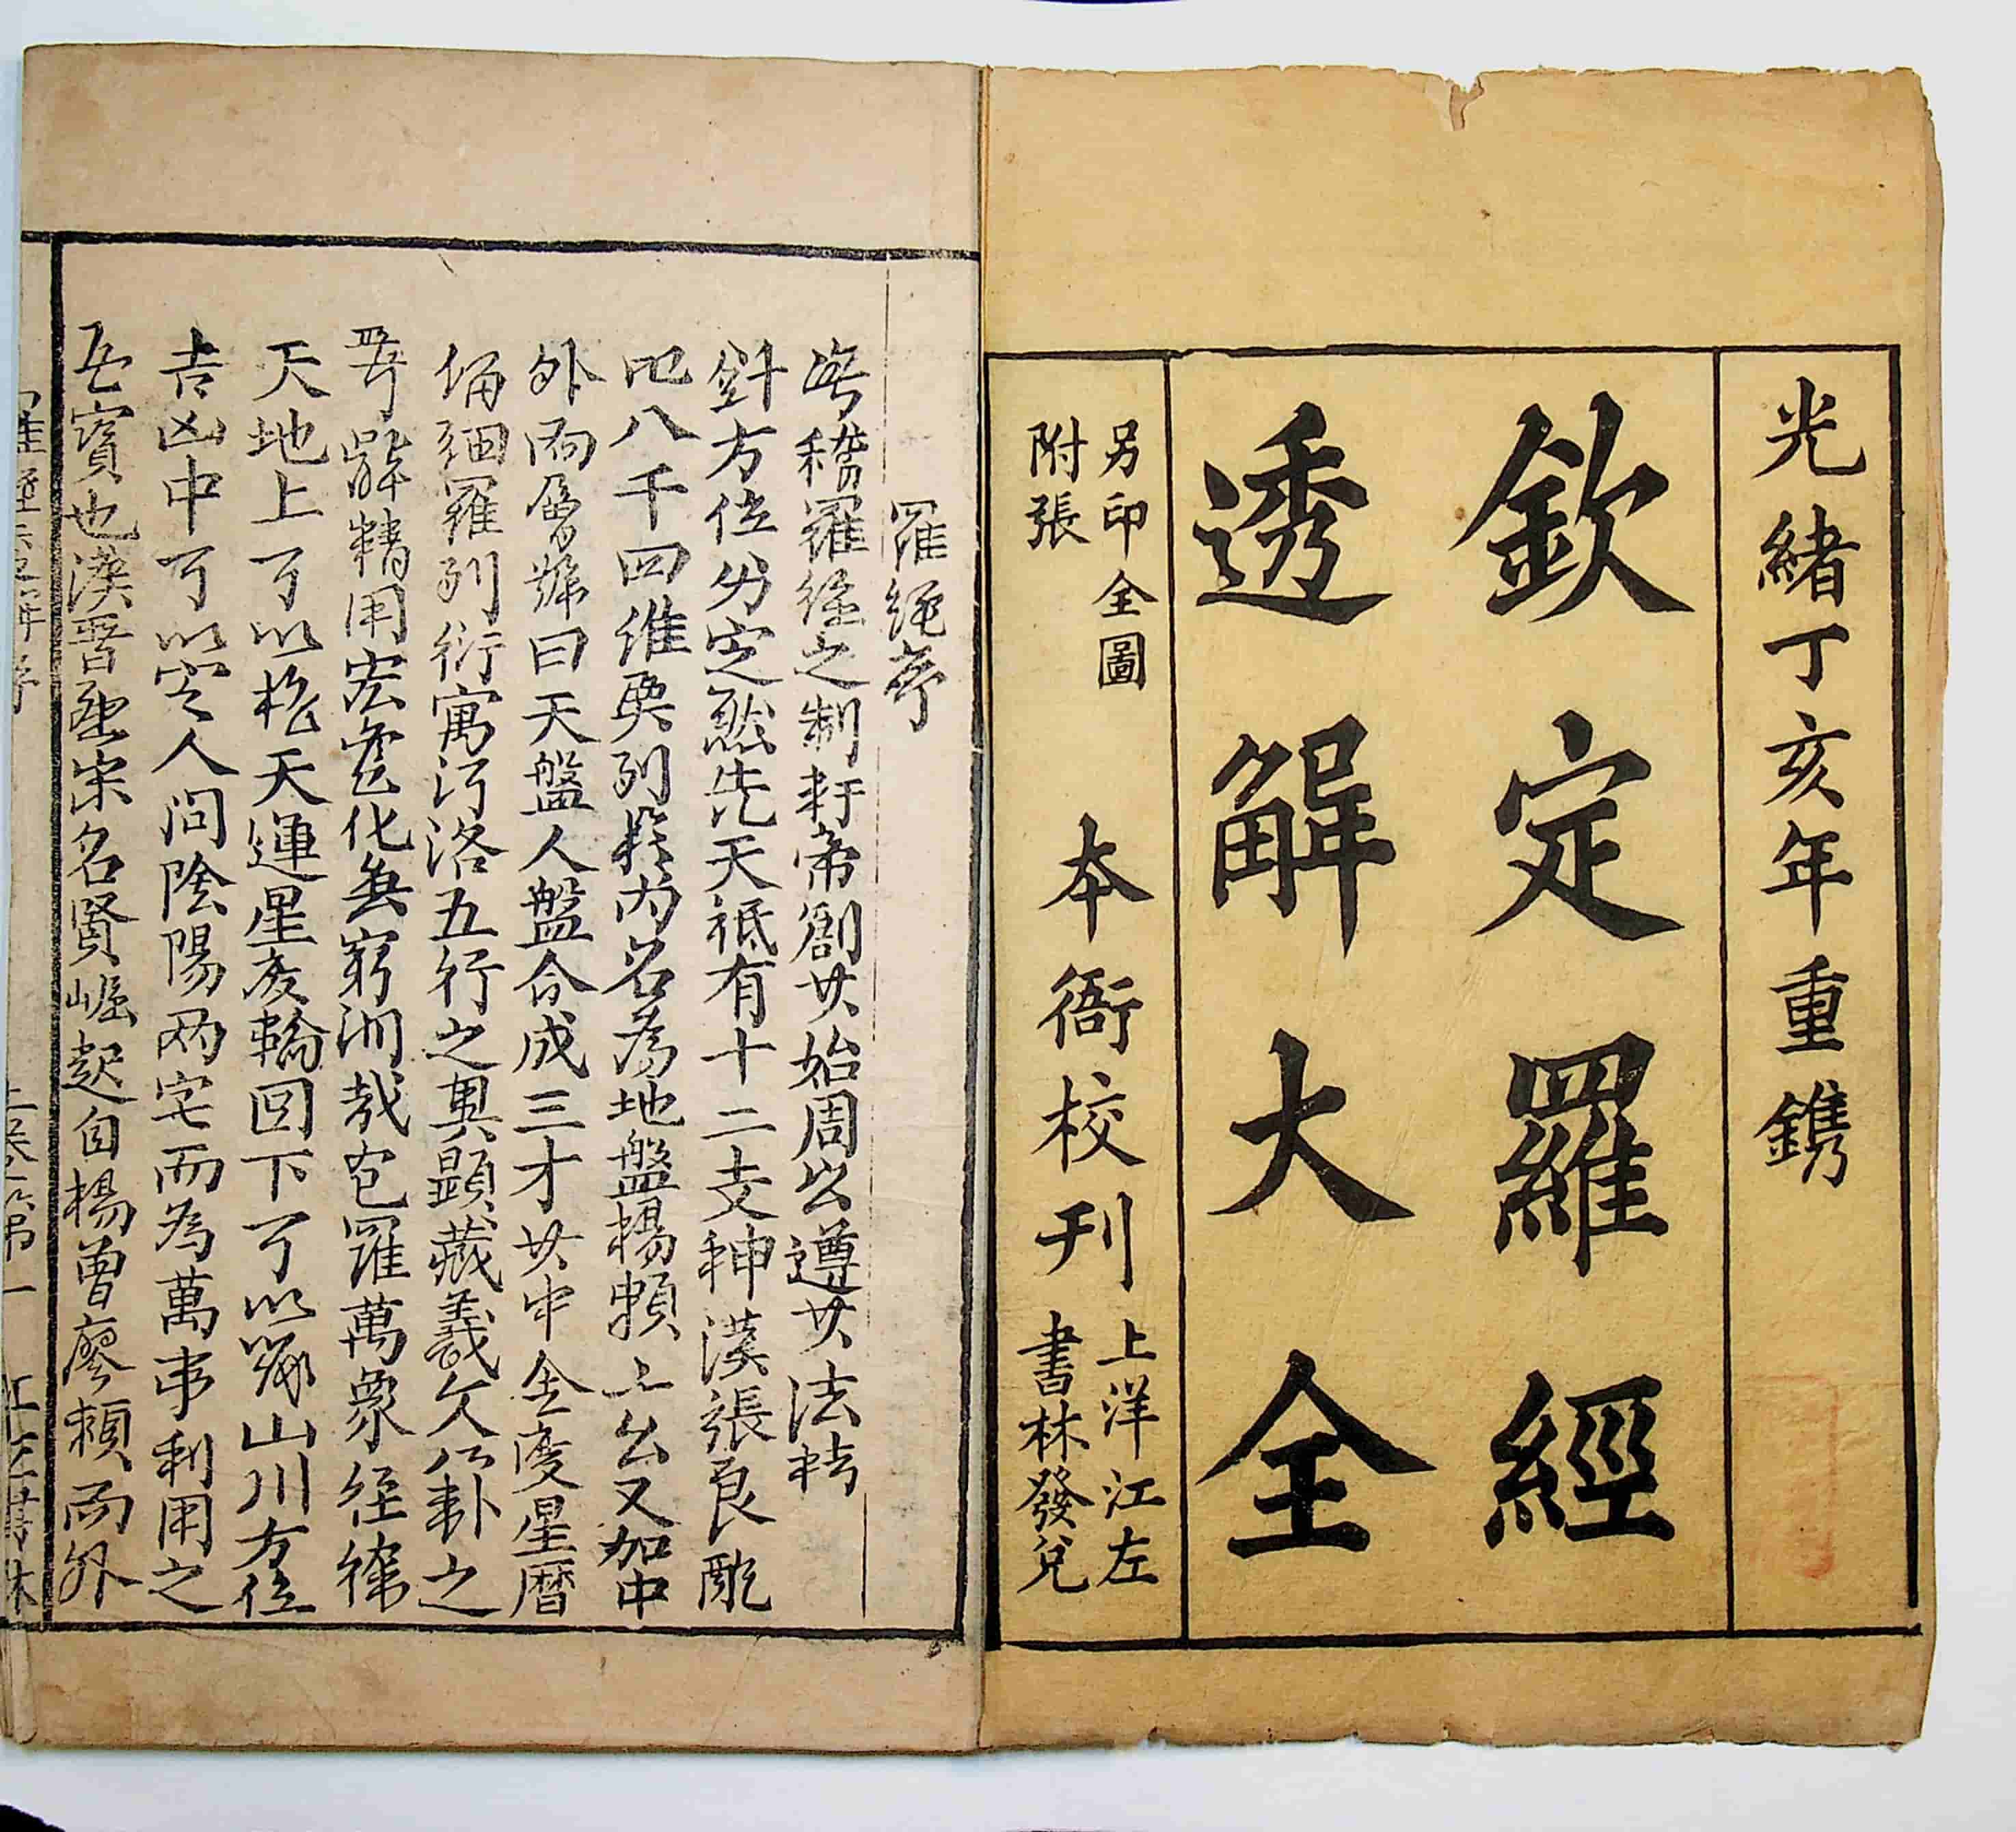 光緒丁亥年重鐫
欽定羅經
透解大全
另印全圖
附張
本衙校刊
上洋江左
書林發兌
羅經序
稽羅經之制軒帝創其始周公遵其法
針方位分定然先天祗有十二支神漢張良配
八千四維奧列於內名為地盤楊賴二公又加中
外兩層縣曰天盤人盤合成三才其中全度星曆
備細羅列衍寓河洛五行之奧顯藏羲文八卦之
精用宏變化無窮洵哉包羅萬象經緯
天地上可以格天運星辰輪回下可以察山川方位
吉凶中可以定人間陰陽兩宅而為萬事利用之
至寶也漢晉唐宋名賢崛起自楊曾廖賴而外